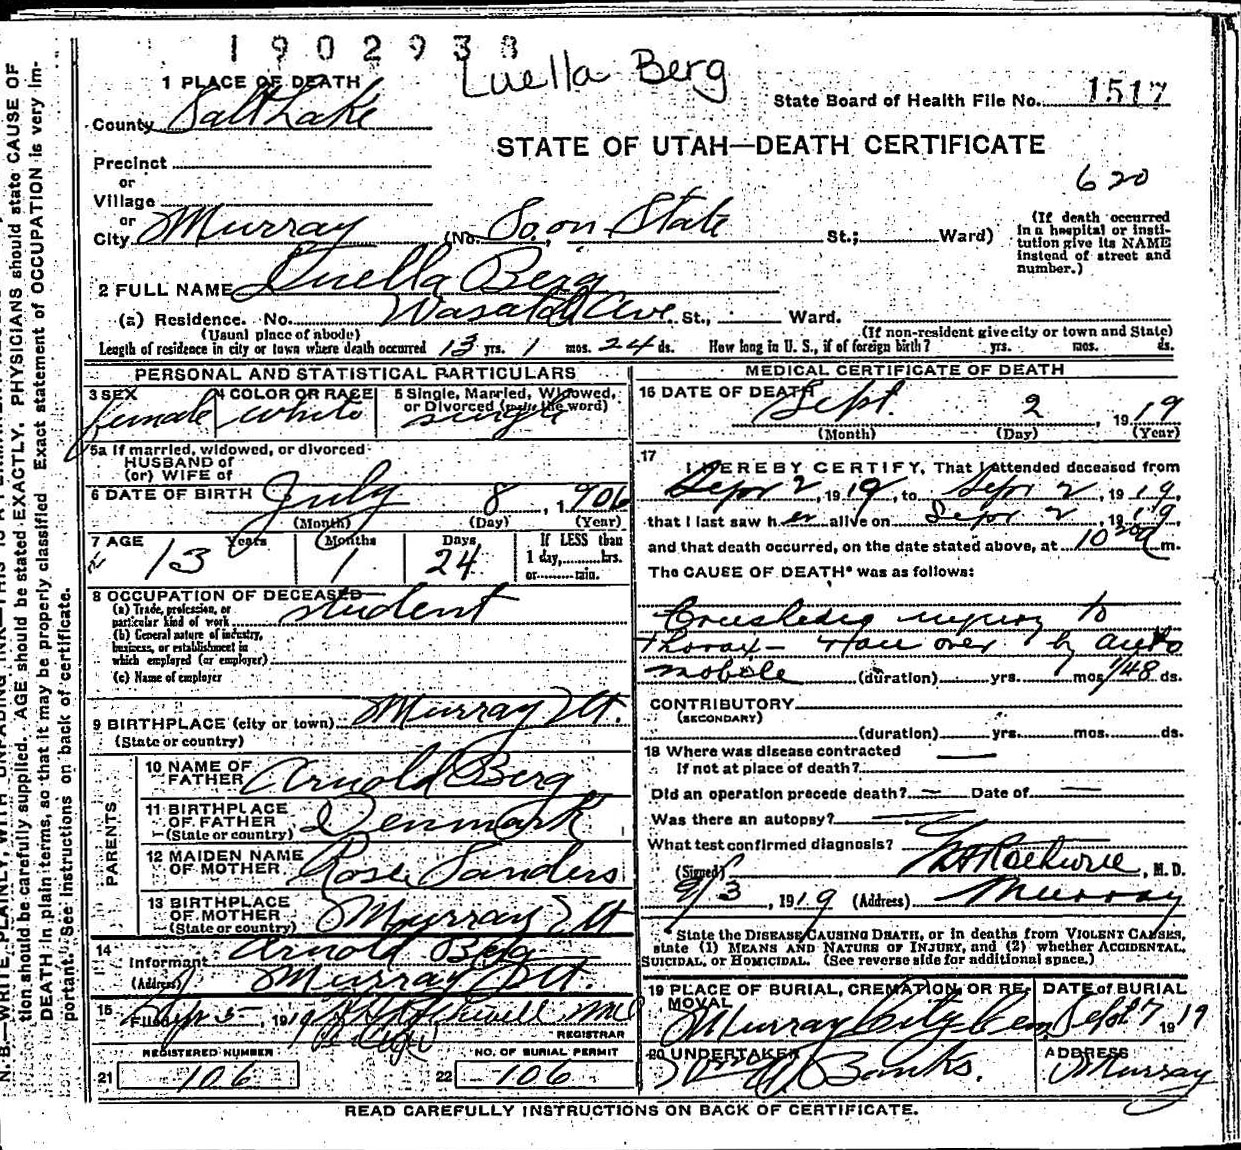 1902938
Luella Berg
1 PLACE OF DEATH
State Board of Health File No. 1517
County Salt Lake
STATE OF UTAH—DEATH CERTIFICATE
Precinct
620
or
Village
or
City Murray (No. So. on State St.; Ward)
(If death occurred in a hospital or institution give its NAME instead of street and number.)
2 FULL NAME Luella Berg
(a) Residence. No. Wasatch Ave St., Ward.
(Usual place of abode) (If non-resident give city or town and State)
Length of residence in city or town where death occurred 13 yrs. 1 mos. 24 ds. How long in U. S., if of foreign birth? yrs. mos. ds.
PERSONAL AND STATISTICAL PARTICULARS
3 SEX 4 COLOR OR RACE 5 Single, Married, Widowed,
or Divorced (write the word)
female white single
5a If married, widowed, or divorced
HUSBAND of
(or) WIFE of
6 DATE OF BIRTH July 8, 1906
(Month) (Day) (Year)
7 AGE Years Months Days If LESS than
13 1 24 1 day, hrs.
or min.
8 OCCUPATION OF DECEASED
(a) Trade, profession, or
particular kind of work student
(b) General nature of industry,
business, or establishment in
which employed (or employer)
(c) Name of employer
9 BIRTHPLACE (city or town) Murray Ut.
(State or country)
PARENTS
10 NAME OF
FATHER Arnold Berg
11 BIRTHPLACE
OF FATHER Denmark
(State or country)
12 MAIDEN NAME
OF MOTHER Rose Sanders
13 BIRTHPLACE
OF MOTHER Murray Ut
(State or country)
14
Informant Arnold Berg
(Address) Murray Ut.
15
Filed Sep 5, 1919 Rockwell MD
REGISTRAR
REGISTERED NUMBER NO. OF BURIAL PERMIT
21 106 22 106
MEDICAL CERTIFICATE OF DEATH
16 DATE OF DEATH Sept. 2, 1919
(Month) (Day) (Year)
17
I HEREBY CERTIFY, That I attended deceased from
Sept 2, 1919, to Sept 2, 1919,
that I last saw her alive on Sept 2, 1919,
and that death occurred, on the date stated above, at 10 m.
The CAUSE OF DEATH* was as follows:
Crushedig injury to
thorax— ran over by auto
mobile (duration) yrs. mos. 1/48 ds.
CONTRIBUTORY
(SECONDARY)
(duration) yrs. mos. ds.
18 Where was disease contracted
If not at place of death?
Did an operation precede death? — Date of —
Was there an autopsy?
What test confirmed diagnosis?
(Signed) , M. D.
9/3, 1919 (Address) Murray
State the DISEASE CAUSING DEATH, or in deaths from VIOLENT CAUSES,
state (1) MEANS AND NATURE OF INJURY, and (2) whether ACCIDENTAL,
SUICIDAL, or HOMICIDAL. (See reverse side for additional space.)
19 PLACE OF BURIAL, CREMATION, OR RE-
MOVAL
DATE of BURIAL
Murray City Cem Sept 7 1919
20 UNDERTAKER ADDRESS
Banks. Murray
READ CAREFULLY INSTRUCTIONS ON BACK OF CERTIFICATE.
tion should be carefully supplied. AGE should be stated EXACTLY. PHYSICIANS should state CAUSE OF
DEATH in plain terms, so that it may be properly classified. Exact statement of OCCUPATION is very im-
portant. See instructions on back of certificate.